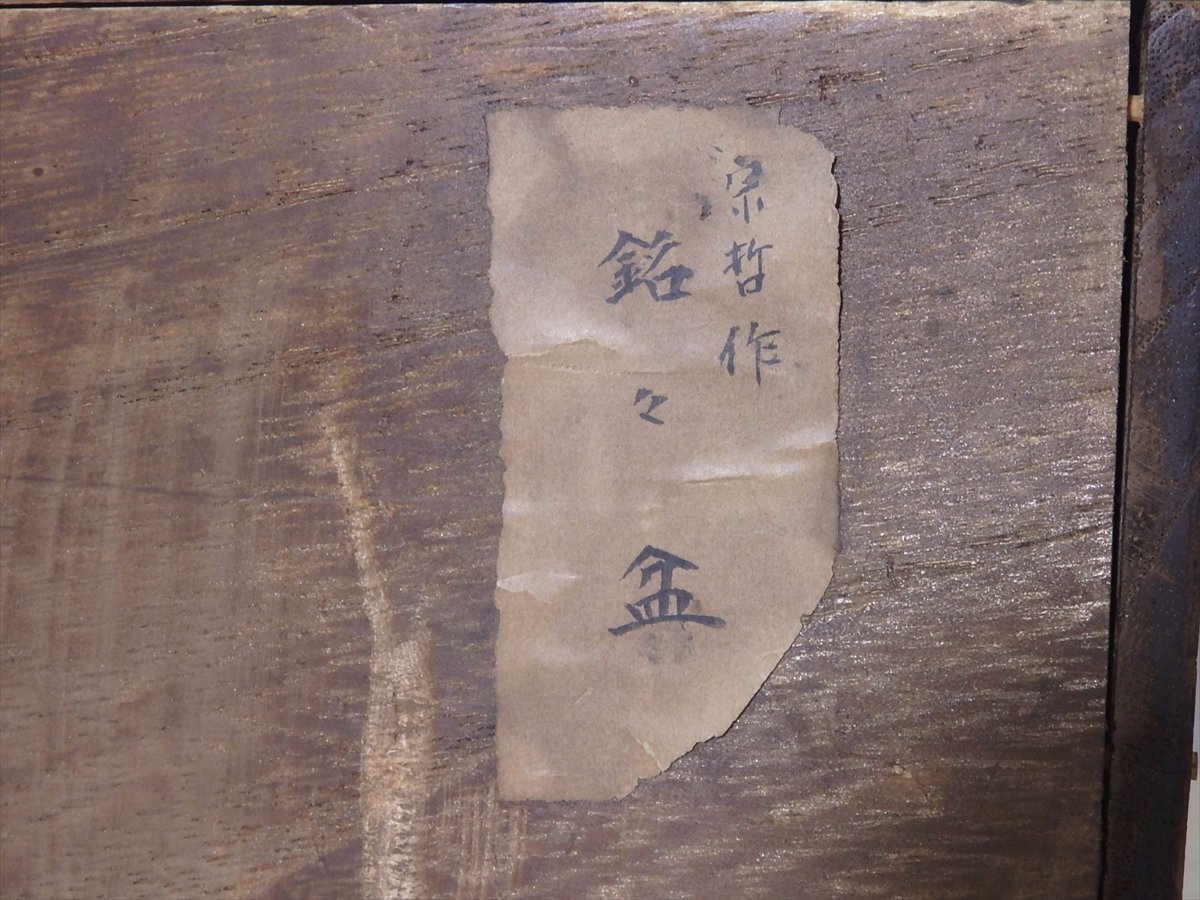 宗哲作
銘々盆